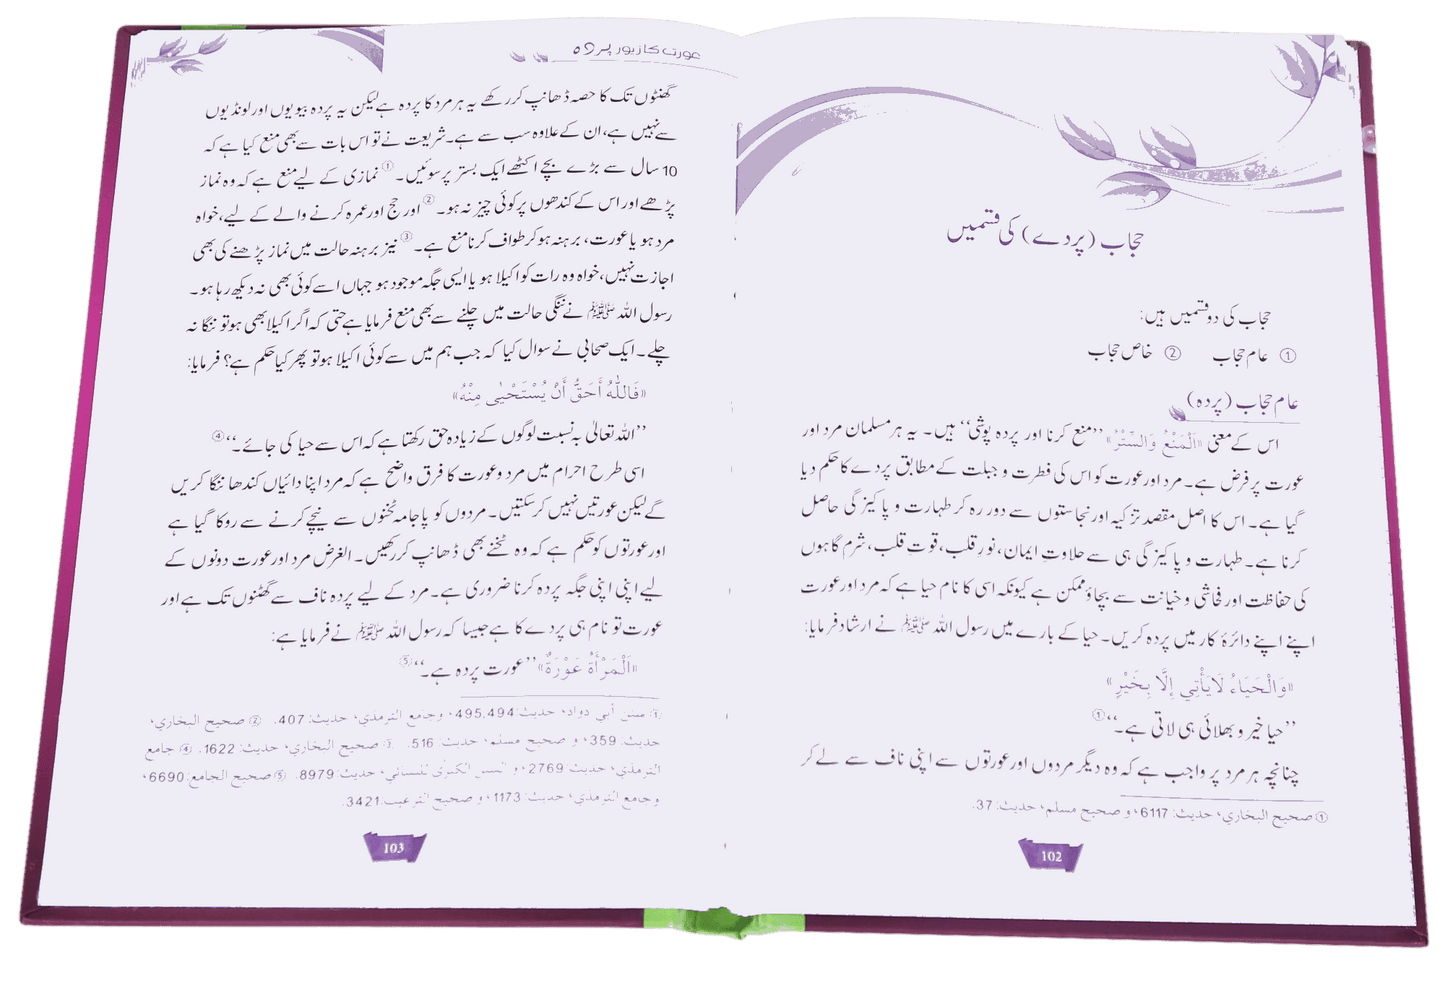 حجاب (پردے) کی قسمیں
حجاب کی دو قسمیں ہیں:
① عام حجاب ② خاص حجاب
عام حجاب (پردہ)
اس کے معنی «اَلْمَنْعُ وَالسَّتْرُ» ’’منع کرنا اور پردہ پوشی‘‘ ہیں۔ یہ ہر مسلمان مرد اور
عورت پر فرض ہے۔ مرد اور عورت کو اس کی فطرت و جبلت کے مطابق پردے کا حکم دیا
گیا ہے۔ اس کا اصل مقصد تزکیہ اور نجاستوں سے دور رہ کر طہارت و پاکیزگی حاصل
کرنا ہے۔ طہارت و پاکیزگی ہی سے حلاوتِ ایمان، نورِ قلب، قوت قلب، شرم گاہوں
کی حفاظت اور فحاشی و خیانت سے بچاؤ ممکن ہے کیونکہ اسی کا نام حیا ہے کہ مرد اور عورت
اپنے اپنے دائرۂ کار میں پردہ کریں۔ حیا کے بارے میں رسول اللہ ﷺ نے ارشاد فرمایا:
«وَالْحَيَاءُ لَايَأْتِي إِلَّا بِخَيْرٍ»
’’حیا خیر و بھلائی ہی لاتی ہے۔‘‘①
چنانچہ ہر مرد پر واجب ہے کہ وہ دیگر مردوں اور عورتوں سے اپنی ناف سے لے کر
① صحيح البخاري، حديث: 6117، و صحيح مسلم، حديث: 37.
102
عورت کا زیور پردہ
گھٹنوں تک کا حصہ ڈھانپ کر رکھے یہ ہر مرد کا پردہ ہے لیکن یہ پردہ بیویوں اور لونڈیوں
سے نہیں ہے، ان کے علاوہ سب سے ہے۔ شریعت نے تو اس بات سے بھی منع کیا ہے کہ
10 سال سے بڑے بچے اکٹھے ایک بستر پر سوئیں۔① نمازی کے لیے منع ہے کہ وہ نماز
پڑھے اور اس کے کندھوں پر کوئی چیز نہ ہو۔② اور حج اور عمرہ کرنے والے کے لیے، خواہ
مرد ہو یا عورت، برہنہ ہو کر طواف کرنا منع ہے۔③ نیز برہنہ حالت میں نماز پڑھنے کی بھی
اجازت نہیں، خواہ وہ رات کو اکیلا ہو یا ایسی جگہ موجود ہو جہاں اسے کوئی بھی نہ دیکھ رہا ہو۔
رسول اللہ ﷺ نے ننگی حالت میں چلنے سے بھی منع فرمایا ہے حتی کہ اگر اکیلا بھی ہو تو ننگا نہ
چلے۔ ایک صحابی نے سوال کیا کہ جب ہم میں سے کوئی اکیلا ہو تو پھر کیا حکم ہے؟ فرمایا:
«فَاللّٰهُ أَحَقُّ أَنْ يُسْتَحْيٰى مِنْهُ»
’’اللہ تعالیٰ بہ نسبت لوگوں کے زیادہ حق رکھتا ہے کہ اس سے حیا کی جائے۔‘‘④
اسی طرح احرام میں مرد و عورت کا فرق واضح ہے کہ مرد اپنا دائیاں کندھا ننگا کریں
گے لیکن عورتیں نہیں کر سکتیں۔ مردوں کو پاجامہ ٹخنوں سے نیچے کرنے سے روکا گیا ہے
اور عورتوں کو حکم ہے کہ وہ ٹخنے بھی ڈھانپ کر رکھیں۔ الغرض مرد اور عورت دونوں کے
لیے اپنی اپنی جگہ پردہ کرنا ضروری ہے۔ مرد کے لیے پردہ ناف سے گھٹنوں تک ہے اور
عورت تو نام ہی پردے کا ہے جیسا کہ رسول اللہ ﷺ نے فرمایا ہے:
«اَلْمَرْأَةُ عَوْرَةٌ» ’’عورت پردہ ہے۔‘‘⑤
① سنن أبي داود، حديث: 495,494، وجامع الترمذي، حديث: 407. ② صحيح البخاري،
حديث: 359، و صحيح مسلم، حديث: 516. ③ صحيح البخاري، حديث: 1622. ④ جامع
الترمذي، حديث: 2769، و السنن الكبرٰى للنسائي، حديث: 8979. ⑤ صحيح الجامع: 6690،
وجامع الترمذي، حديث: 1173، و صحيح الترغيب: 3421.
103